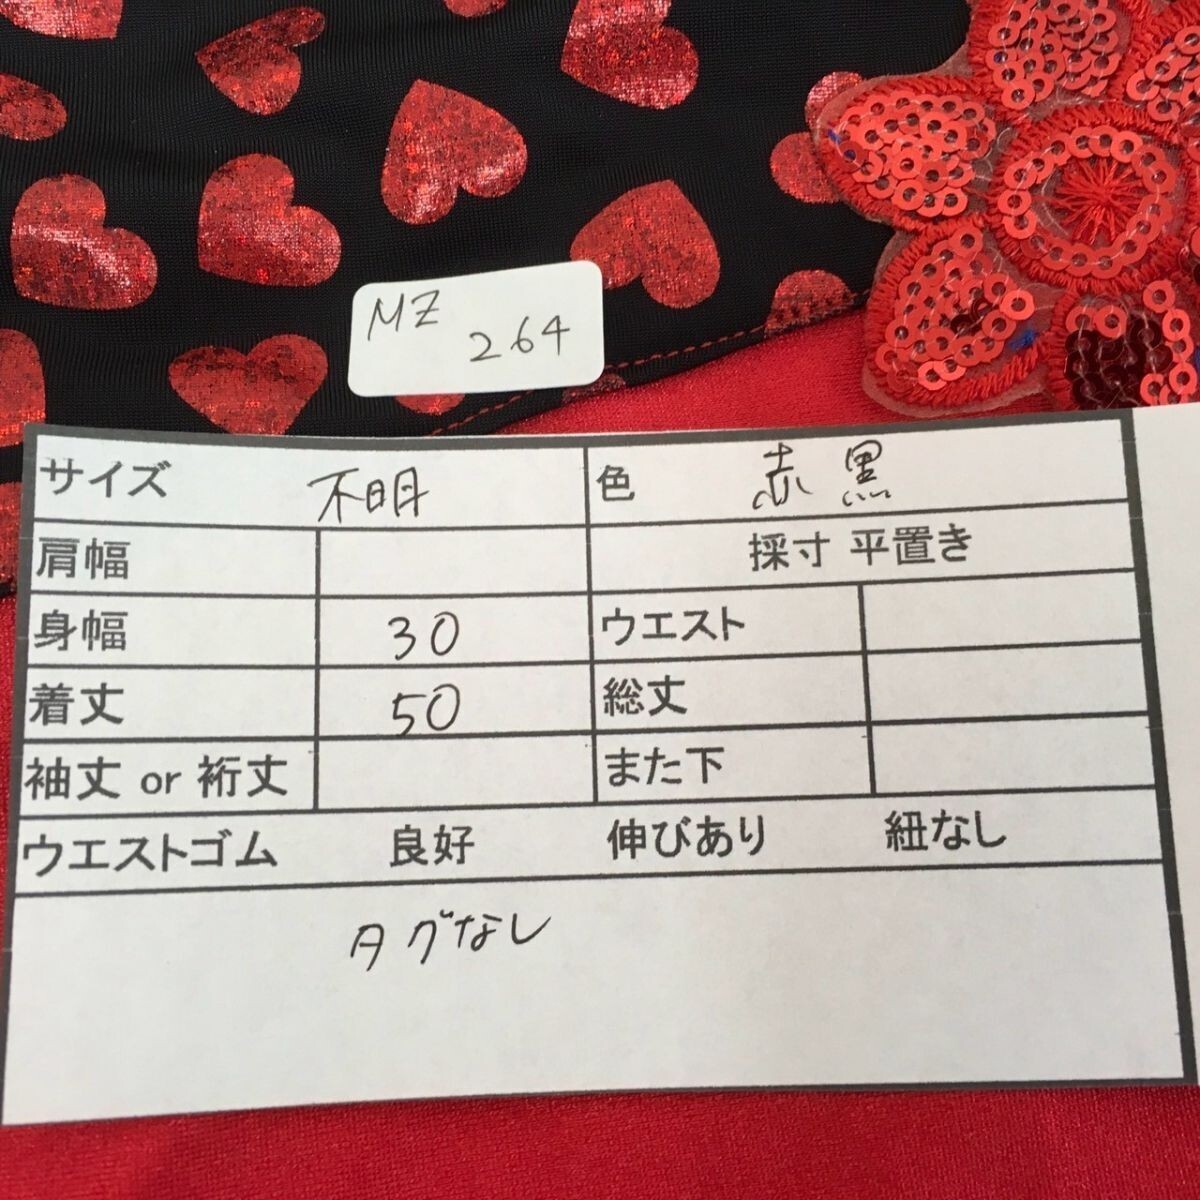 MZ
264
サイズ 不明 色 赤黒
肩幅 採寸 平置き
身幅 30 ウエスト
着丈 50 総丈
袖丈 or 裄丈 また下
ウエストゴム 良好 伸びあり 紐なし
タグなし